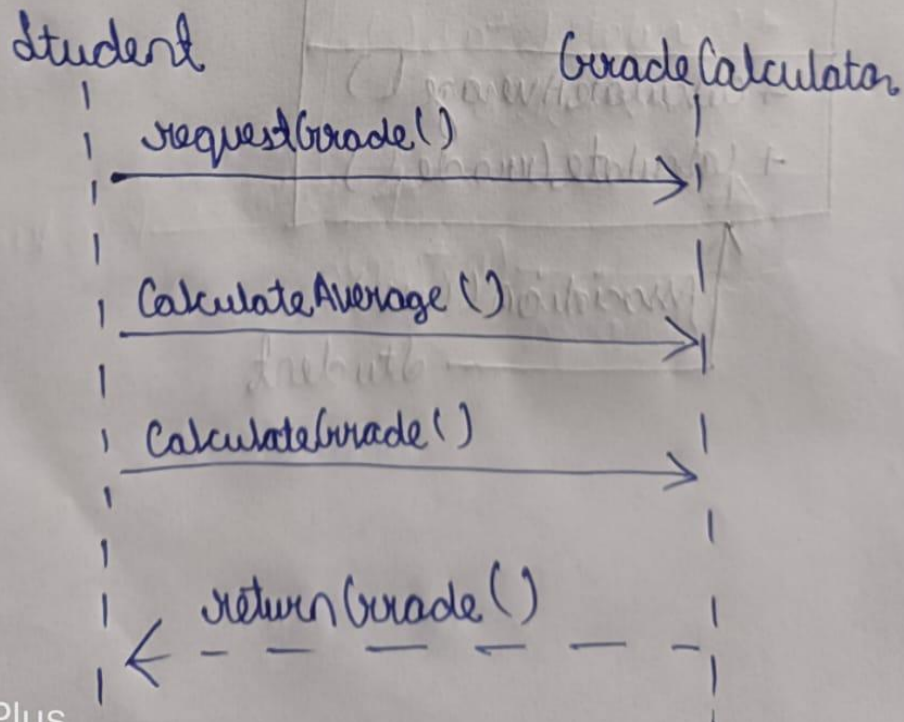 Student
GradeCalculator
requestGrade()
CalculateAverage()
CalculateGrade()
returnGrade()
Plus